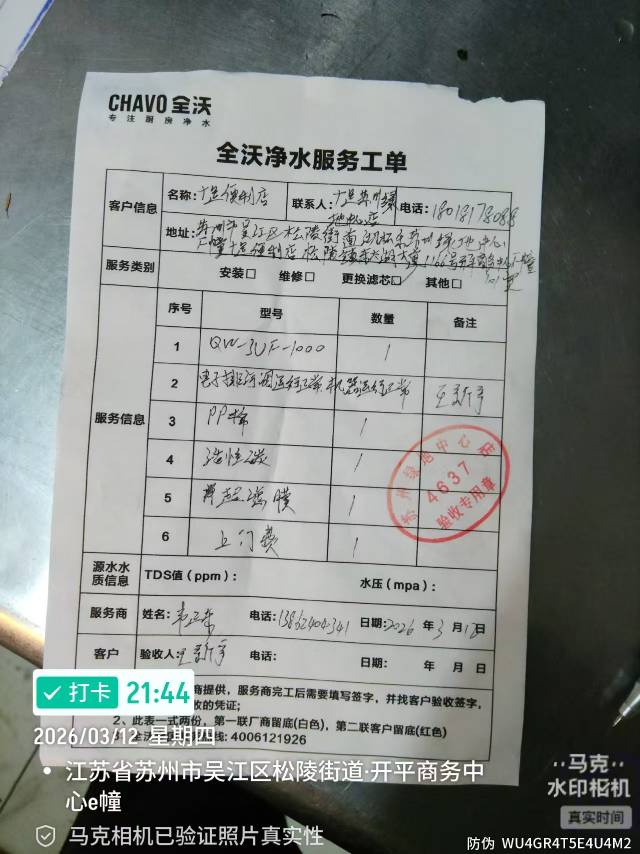 CHAVO 全沃
专注厨房净水
全沃净水服务工单
客户信息
名称：十足便利店
联系人：十足苏州绿地北店
电话：18013178088
地址：苏州市吴江区松陵街
服务类别
安装□ 维修□ 更换滤芯□ 其他□
服务信息
序号 型号 数量 备注
1 QW-3UF-1000 1
2 运行正常 机器运行正常
3 PP棉 1
4 活性炭 1
5 超滤膜 1
6 上门费 1
4637
验收专用章
源水水质信息
TDS值（ppm）： 水压（mpa）：
服务商
姓名： 电话： 日期：2026 年 3 月 12日
客户
验收人： 电话： 日期： 年 月 日
商提供，服务商完工后需要填写签字，并找客户验收签字，
收的凭证；
2、此表一式两份，第一联厂商留底(白色)，第二联客户留底(红色)
线：4006121926
打卡 21:44
2026/03/12 星期四
江苏省苏州市吴江区松陵街道·开平商务中心e幢
马克相机已验证照片真实性
马克
水印相机
真实时间
防伪 WU4GR4T5E4U4M2